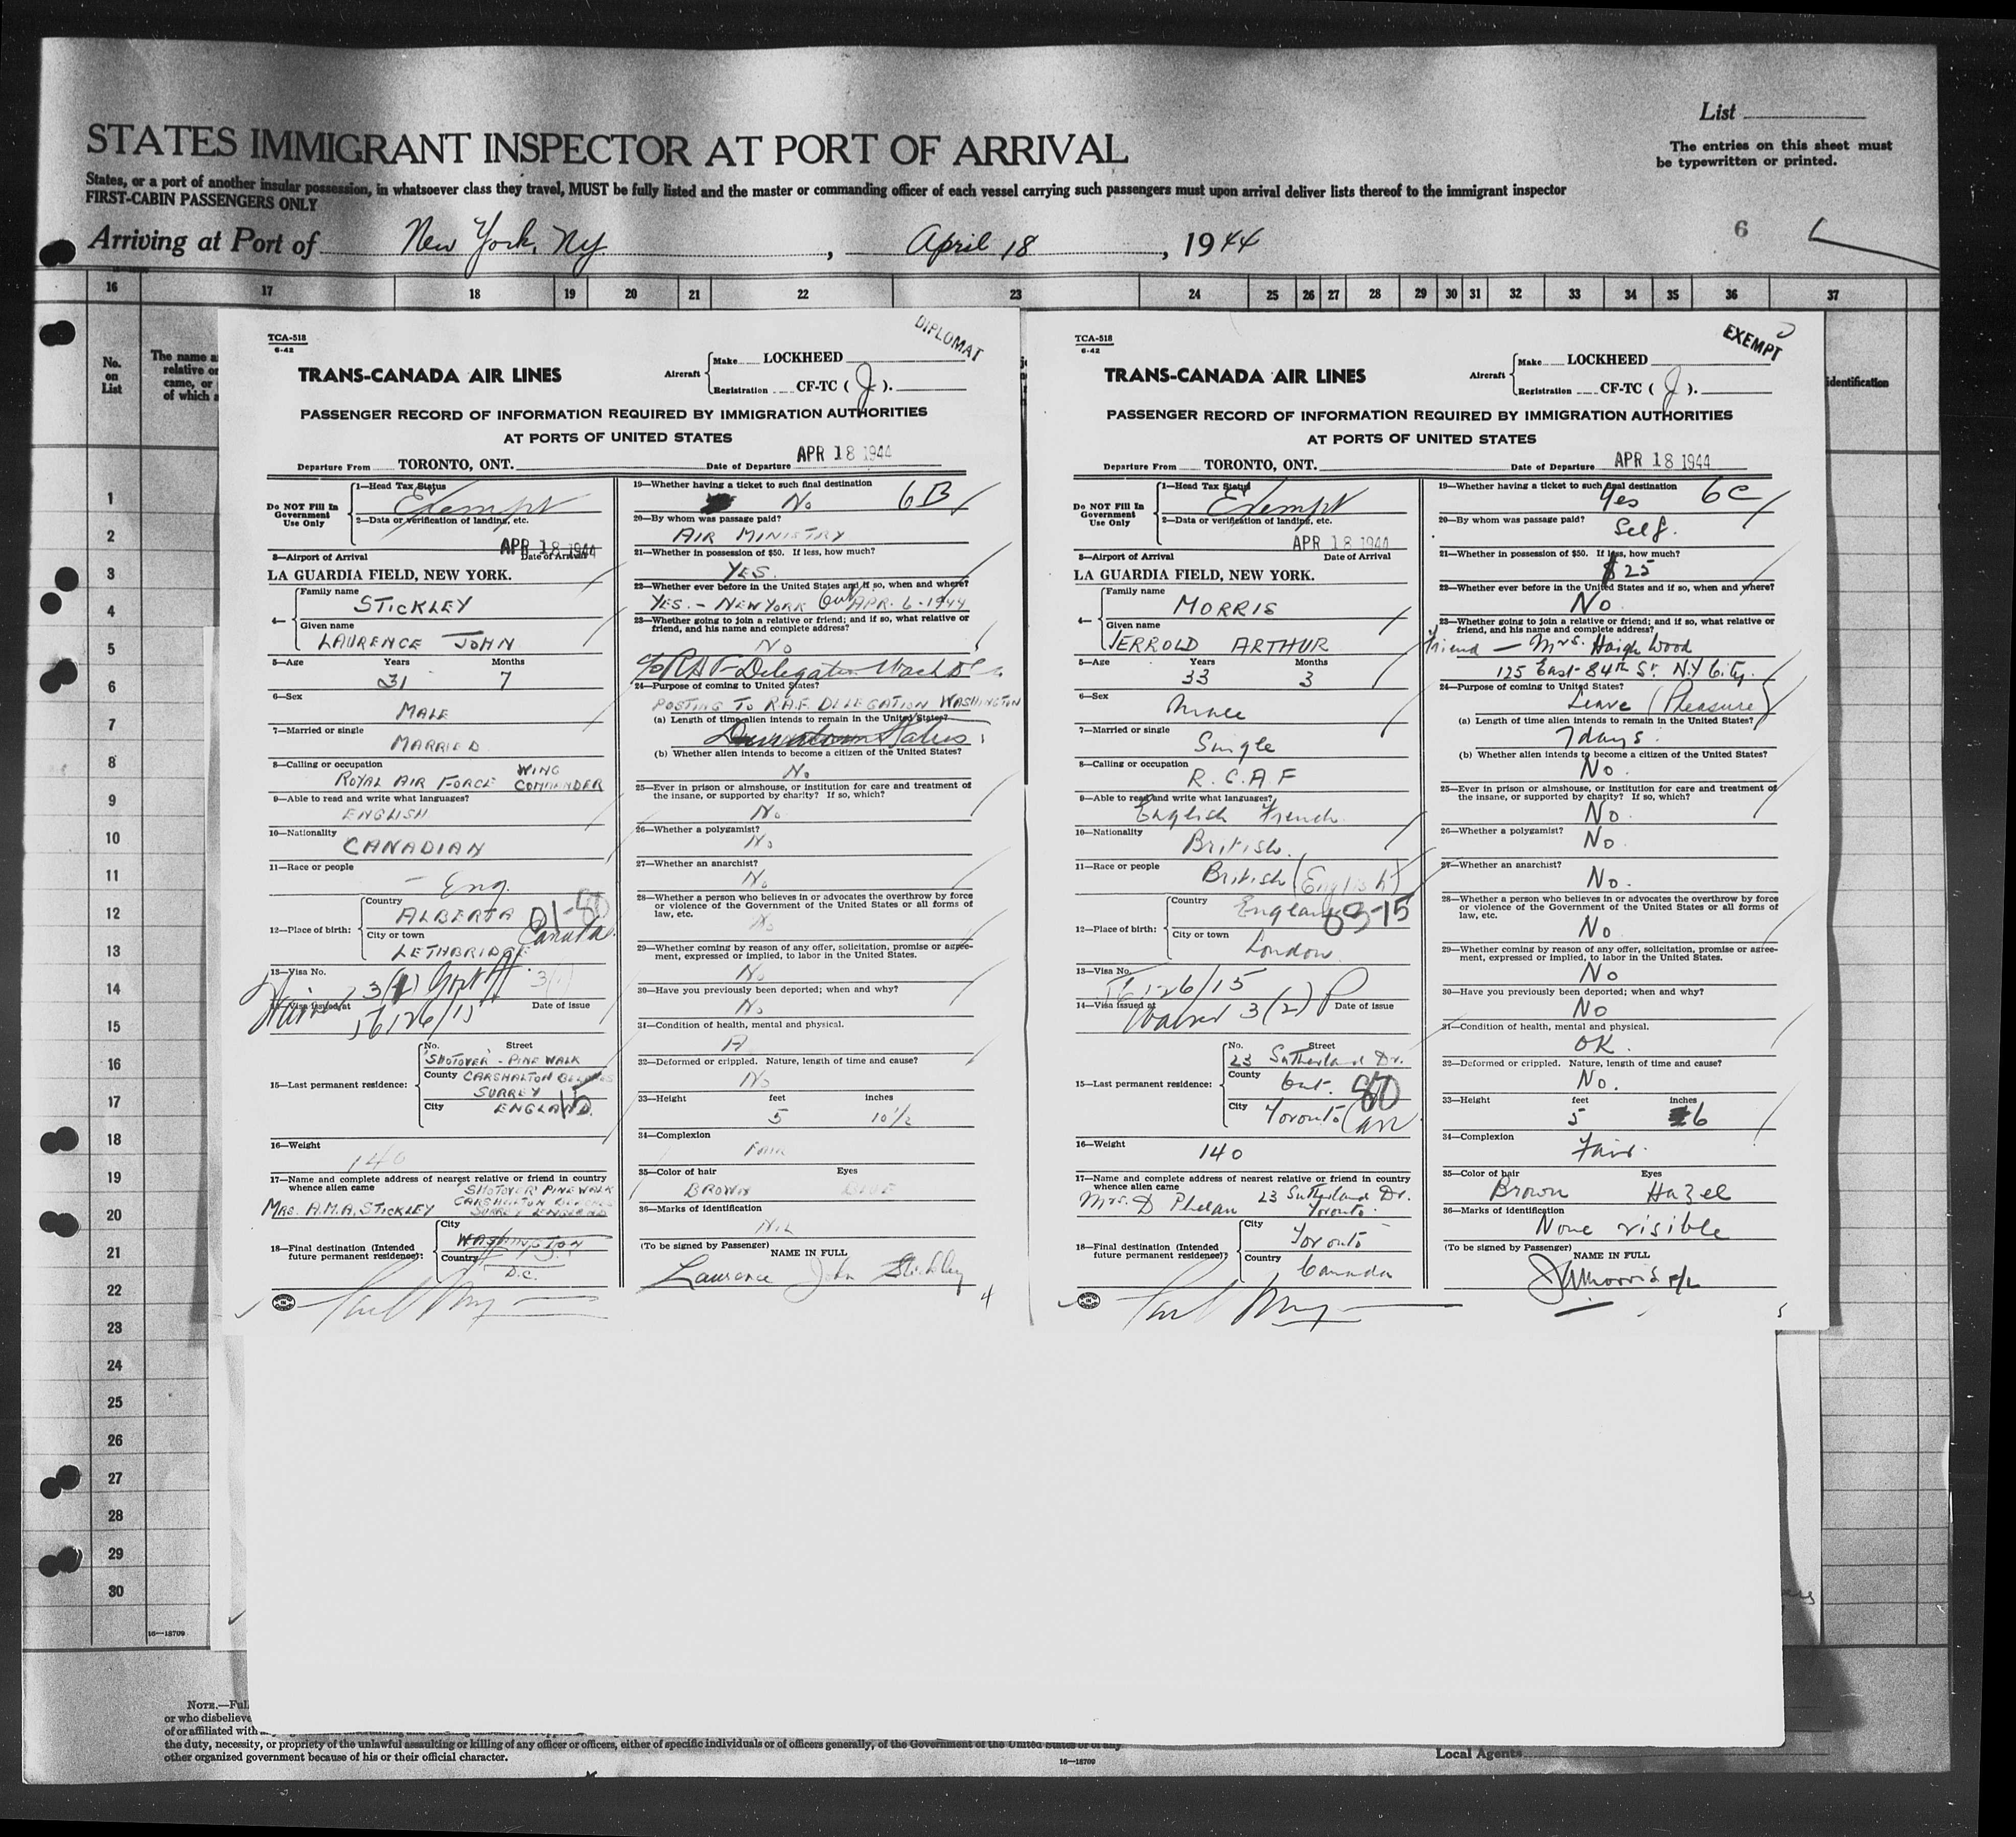 List
The entries on this sheet must
be typewritten or printed.
STATES IMMIGRANT INSPECTOR AT PORT OF ARRIVAL
States, or a port of another insular possession, in whatsoever class they travel, MUST be fully listed and the master or commanding officer of each vessel carrying such passengers must upon arrival deliver lists thereof to the immigrant inspector
FIRST-CABIN PASSENGERS ONLY
Arriving at Port of New York, Ny. , April 18 , 1944
6
16 17 18 19 20 21 22 23 24 25 26 27 28 29 30 31 32 33 34 35 36 37
No.
on
List
The name a
relative or
came, or
of which a
identification
1
2
3
4
5
6
7
8
9
10
11
12
13
14
15
16
17
18
19
20
21
22
23
24
25
26
27
28
29
30
16—18709
TCA-518
6-42
DIPLOMAT
TRANS-CANADA AIR LINES
Aircraft Make LOCKHEED
Registration CF-TC ( J ).
PASSENGER RECORD OF INFORMATION REQUIRED BY IMMIGRATION AUTHORITIES
AT PORTS OF UNITED STATES
Departure From TORONTO, ONT. Date of Departure APR 18 1944
Do NOT Fill In
Government
Use Only
1—Head Tax Status
Exempt
2—Data or verification of landing, etc.
APR 18 1944
3—Airport of Arrival Date of Arrival
LA GUARDIA FIELD, NEW YORK.
4— Family name
STICKLEY
Given name
LAURENCE JOHN
5—Age Years Months
31 7
6—Sex
MALE
7—Married or single
MARRIED
8—Calling or occupation
ROYAL AIR FORCE WING COMMANDER
9—Able to read and write what languages?
ENGLISH
10—Nationality
CANADIAN
11—Race or people
Eng.
12—Place of birth: Country
ALBERTA
Canada
City or town
LETHBRIDGE
13—Visa No.
3(1)
14—Visa issued at Date of Issue
15—Last permanent residence: No. Street
'SHOTOVER' - PINE WALK
County CARSHALTON
SURREY
City ENGLAND
16—Weight
140
17—Name and complete address of nearest relative or friend in country
whence alien came
'SHOTOVER' PINE WALK
MRS. A.M.A. STICKLEY
SURREY ENGLAND
18—Final destination (Intended
future permanent residence): City
WASHINGTON
Country
D.C.
19—Whether having a ticket to such final destination
No 6B
20—By whom was passage paid?
AIR MINISTRY
21—Whether in possession of $50. If less, how much?
YES.
22—Whether ever before in the United States and if so, when and where?
YES. - NEW YORK Out APR. 6 - 1944
23—Whether going to join a relative or friend; and if so, what relative or
friend, and his name and complete address?
No
24—Purpose of coming to United States?
POSTING TO R.A.F. DELEGATION WASHINGTON
(a) Length of time alien intends to remain in the United States?
(b) Whether alien intends to become a citizen of the United States?
No
25—Ever in prison or almshouse, or institution for care and treatment of
the insane, or supported by charity? If so, which?
No
26—Whether a polygamist?
No
27—Whether an anarchist?
No
28—Whether a person who believes in or advocates the overthrow by force
or violence of the Government of the United States or all forms of
law, etc.
No
29—Whether coming by reason of any offer, solicitation, promise or agree-
ment, expressed or implied, to labor in the United States.
No
30—Have you previously been deported; when and why?
No
31—Condition of health, mental and physical.
A
32—Deformed or crippled. Nature, length of time and cause?
No
33—Height feet inches
5 10½
34—Complexion
35—Color of hair Eyes
BROWN BLUE
36—Marks of identification
NIL
(To be signed by Passenger) NAME IN FULL
Laurence John Stickley
4
TCA-518
6-42
EXEMPT
TRANS-CANADA AIR LINES
Aircraft Make LOCKHEED
Registration CF-TC ( J ).
PASSENGER RECORD OF INFORMATION REQUIRED BY IMMIGRATION AUTHORITIES
AT PORTS OF UNITED STATES
Departure From TORONTO, ONT. Date of Departure APR 18 1944
Do NOT Fill In
Government
Use Only
1—Head Tax Status
Exempt
2—Data or verification of landing, etc.
APR 18 1944
3—Airport of Arrival Date of Arrival
LA GUARDIA FIELD, NEW YORK.
4— Family name
MORRIS
Given name
JERROLD ARTHUR
5—Age Years Months
33 3
6—Sex
Male
7—Married or single
Single
8—Calling or occupation
R.C.A.F
9—Able to read and write what languages?
English French
10—Nationality
British.
11—Race or people
British (English)
12—Place of birth: Country
England
City or town
London
13—Visa No.
14—Visa issued at Date of Issue
Waived 3(2)
15—Last permanent residence: No. Street
23 Sutherland Dr.
County
Ont.
City
Toronto Can
16—Weight
140
17—Name and complete address of nearest relative or friend in country
whence alien came
Mrs. D Phelan 23 Sutherland Dr.
Toronto
18—Final destination (Intended
future permanent residence)? City
Toronto
Country
Canada
19—Whether having a ticket to such final destination
Yes 6C
20—By whom was passage paid?
Self.
21—Whether in possession of $50. If less, how much?
$25
22—Whether ever before in the United States and if so, when and where?
No
23—Whether going to join a relative or friend; and if so, what relative or
friend, and his name and complete address?
friend — Mrs. Haigh Wood
125 East 84th St. N.Y City.
24—Purpose of coming to United States?
Leave (Pleasure)
(a) Length of time alien intends to remain in the United States?
7 days.
(b) Whether alien intends to become a citizen of the United States?
No.
25—Ever in prison or almshouse, or institution for care and treatment of
the insane, or supported by charity? If so, which?
No
26—Whether a polygamist?
No.
27—Whether an anarchist?
No.
28—Whether a person who believes in or advocates the overthrow by force
or violence of the Government of the United States or all forms of
law, etc.
No
29—Whether coming by reason of any offer, solicitation, promise or agree-
ment, expressed or implied, to labor in the United States.
No
30—Have you previously been deported; when and why?
No
31—Condition of health, mental and physical.
OK.
32—Deformed or crippled. Nature, length of time and cause?
No.
33—Height feet inches
5 6
34—Complexion
Fair.
35—Color of hair Eyes
Brown Hazel
36—Marks of identification
None visible
(To be signed by Passenger) NAME IN FULL
JAMorris F/L
NOTE.—Ful
or who disbelieve
of or affiliated with
the duty, necessity, or propriety of the unlawful assaulting or killing of any officer or officers, either of specific individuals or of officers generally, of the Government of the United States or of any
other organized government because of his or their official character.
16—18709
Local Agents